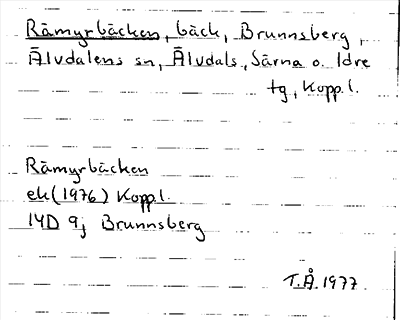 Råmyrbäcken, bäck, Brunnsberg,
Älvdalens sn, Älvdals, Särna o. Idre
tg, Kopp.l.
Råmyrbäcken
ek (1976) Kopp.l.
14D 9j Brunnsberg
T.Å. 1977.